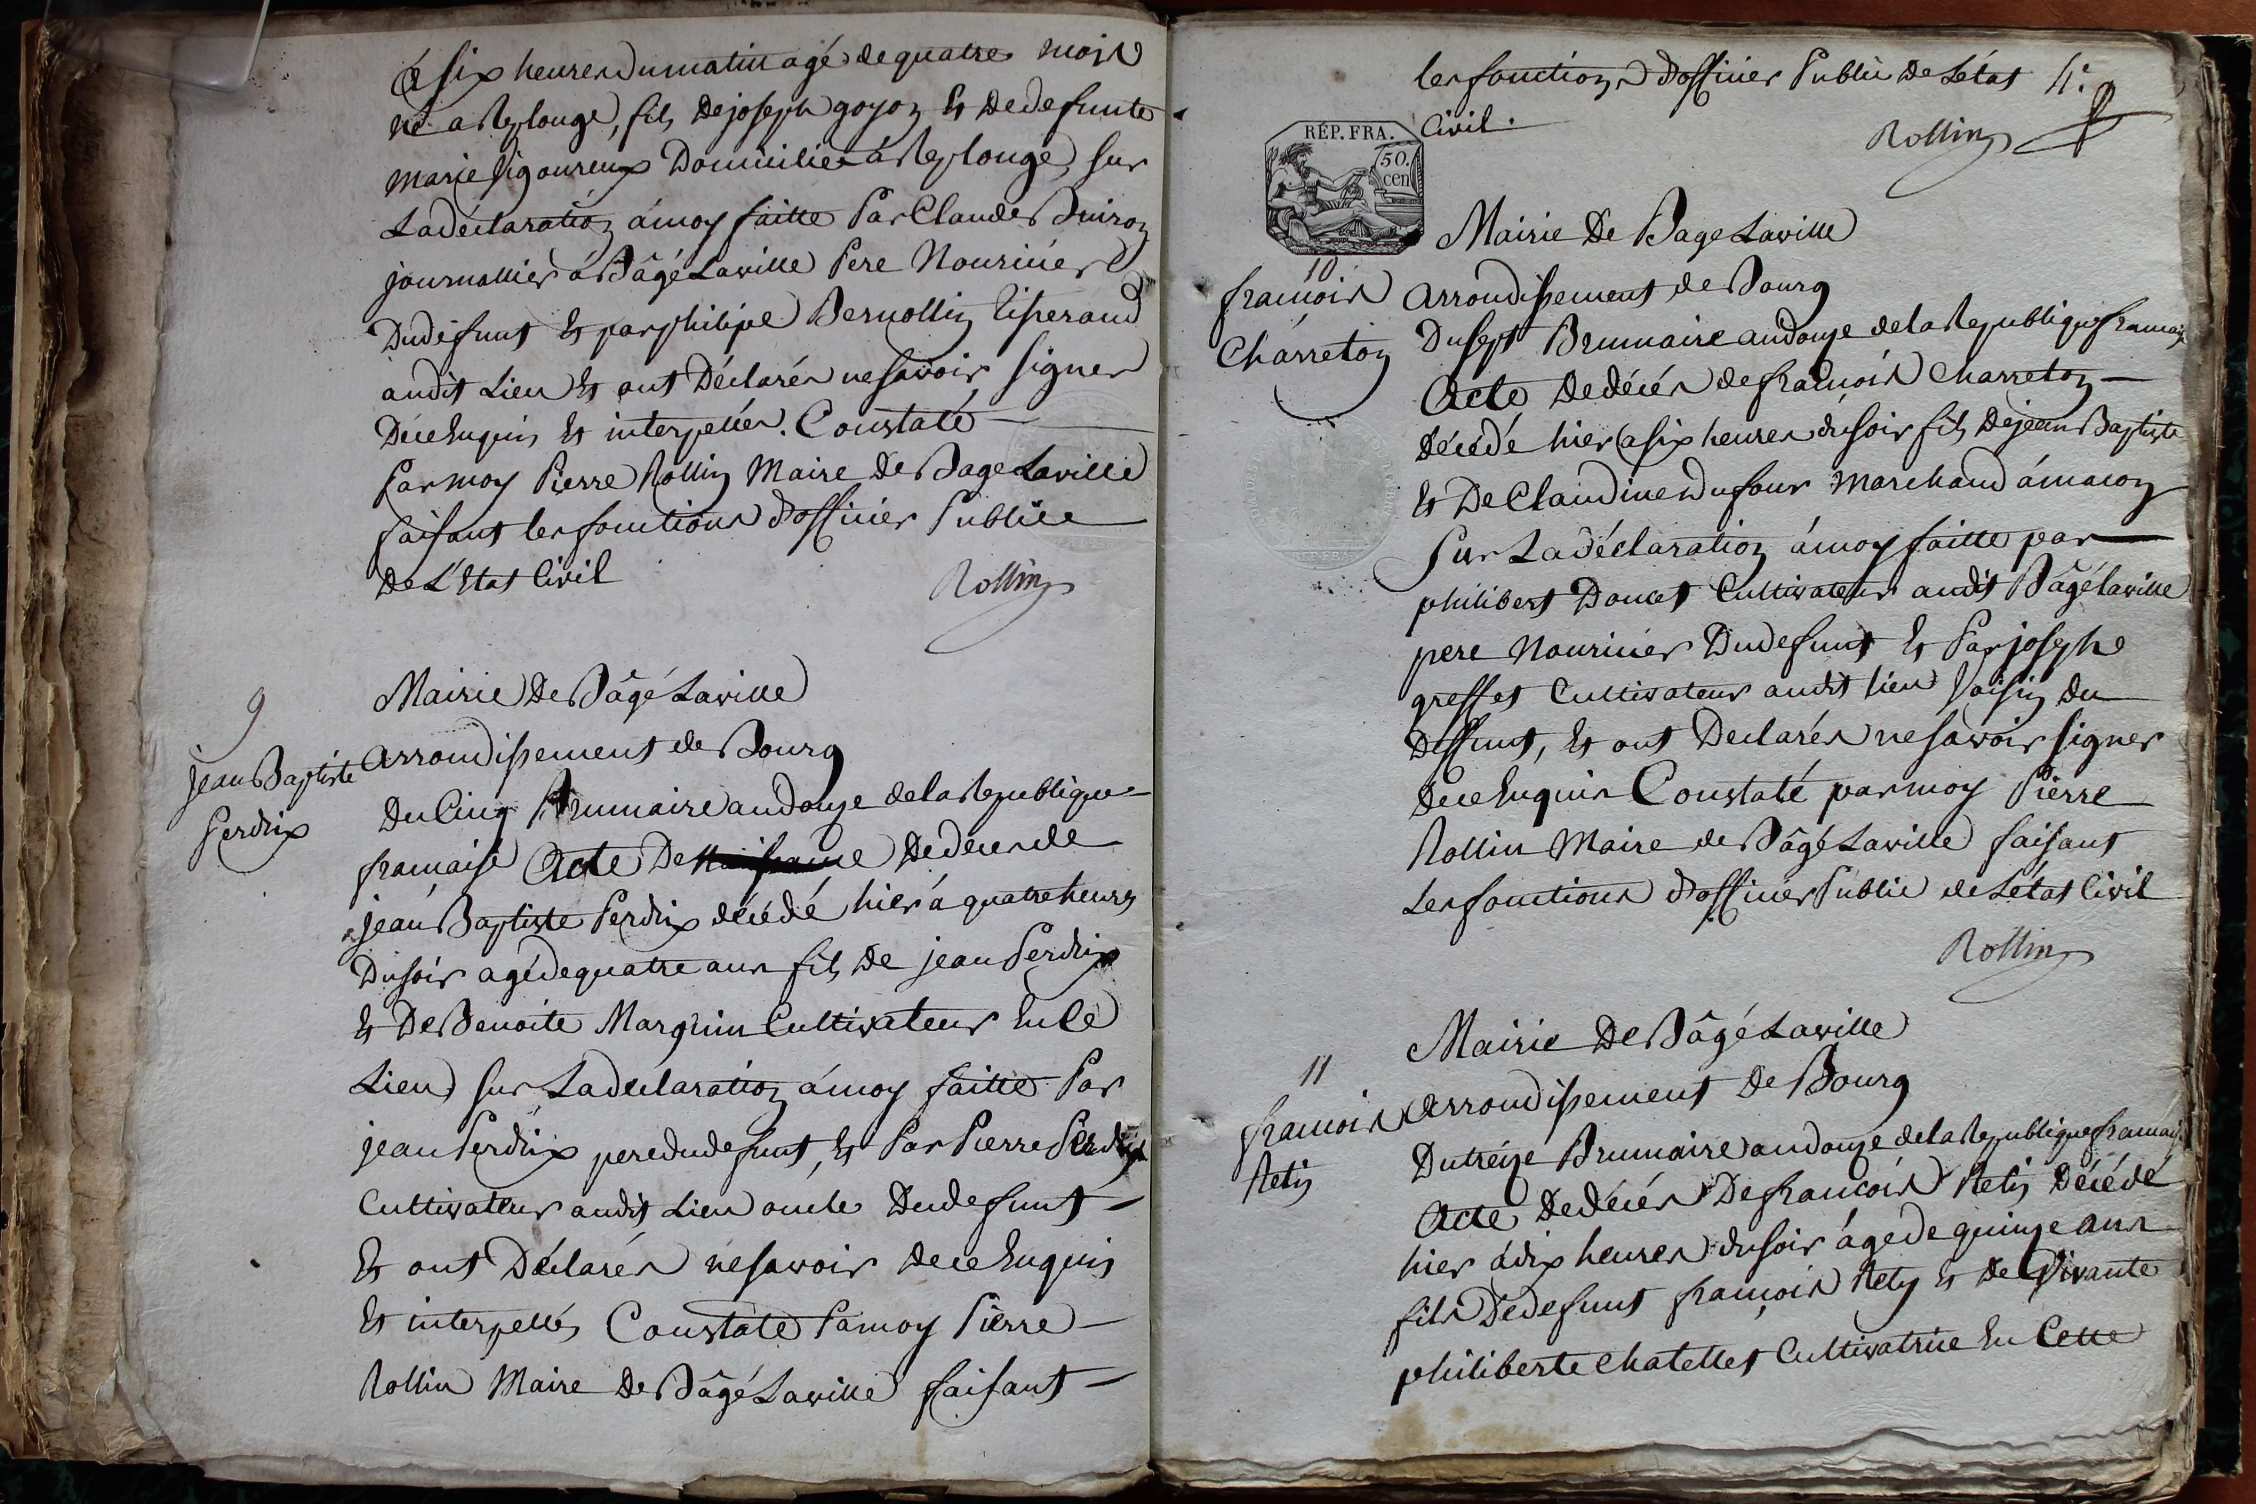 à six heures du matin agé de quatre mois
né a Replonge, fils de joseph goyon Et de defunte
marie Vigoureux Domiciliés à Replonge, sur
La déclaration à moy faitte Par Claude Buiron
journallier à Bâgé Laville Pere Nouricier
Dudéfunt Et par philipe Bernollin Tisserand
audit Lieu Et ont Déclarés ne savoir signer
Dece Enquis Et interpellés. Constaté
Par moy Pierre Rollin Maire De Bage Laville
faisant les fonctions d'officier Publice
De L'Etat Civil
Rollin
9
jean Baptiste
Perdrix
Mairie De Bâgé Laville
arrondissement de Bourg
Du Cinq Brumaire an Douze de la Republique
francaise Acte De naissance De déces de
jean Baptiste Perdrix décédé hier à quatre heures
Du soir agé de quatre ans fils De jean Perdrix
Et De Benoite Marguin Cultivateur En Ce
Lieu sur La déclaration à moy faitte Par
jean Perdrix pere du defunt, Et Par Pierre Perdrix
Cultivateur audit Lieu oncle Dudefunt
Et ont Déclarés ne savoir De ce Enquis
Et interpellés Constaté Parmoy Pierre
Rollin Maire De Bâgé Laville faisant
les fonctions d'officier Public De L'état 4.e
Civil.
Rollin
RÉP. FRA.
50.
cen
10
francois
Charreton
Mairie De Bage Laville
arrondissement de Bourg
Du sept Brumaire an douze de la Republique francaise
Acte De décés de francois Charreton
décédé hier a six heures du soir fils De jean Baptiste
Et De Claudine Dufour Marchand à macon
Sur La déclaration à moy faitte par
philibert Doucet Cultivateur audit Bâgé laville
pere Nouricier Dudefunt Et Par josephe
greffet Cultivateur audit lieu Voisin Du
Deffunt, Et ont Declarés ne savoir signer
de ce Enquis Constaté par moy Pierre
Rollin Maire de Bâgé Laville faisant
Les fonctions d'officier Public de L'état Civil
Rollin
11
francois
Rety
Mairie De Bâgé Laville
arrondissement De Bourg
Du treize Brumaire an douze de la Republique francaise
Acte De décés De francois Rety Décédé
hier à dix heures du soir àgé de quinze ans
fils De defunt françois Rety Et de Vivante
philiberte Chatellet Cultivatrice En Cette